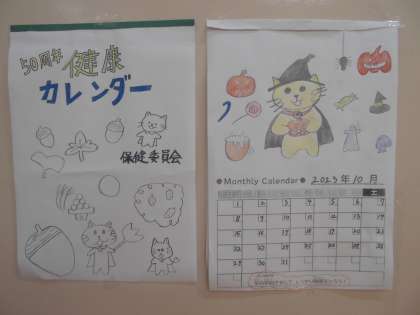 50周年 健康
カレンダー
保健委員会
●Monthly Calendar● 2023年10月
土
1 2 3 4 5 6 7
8 9 10 11 12 13 14
15 16 17 18 19 20 21
22 23 24 25 26 27 28
29 30 31